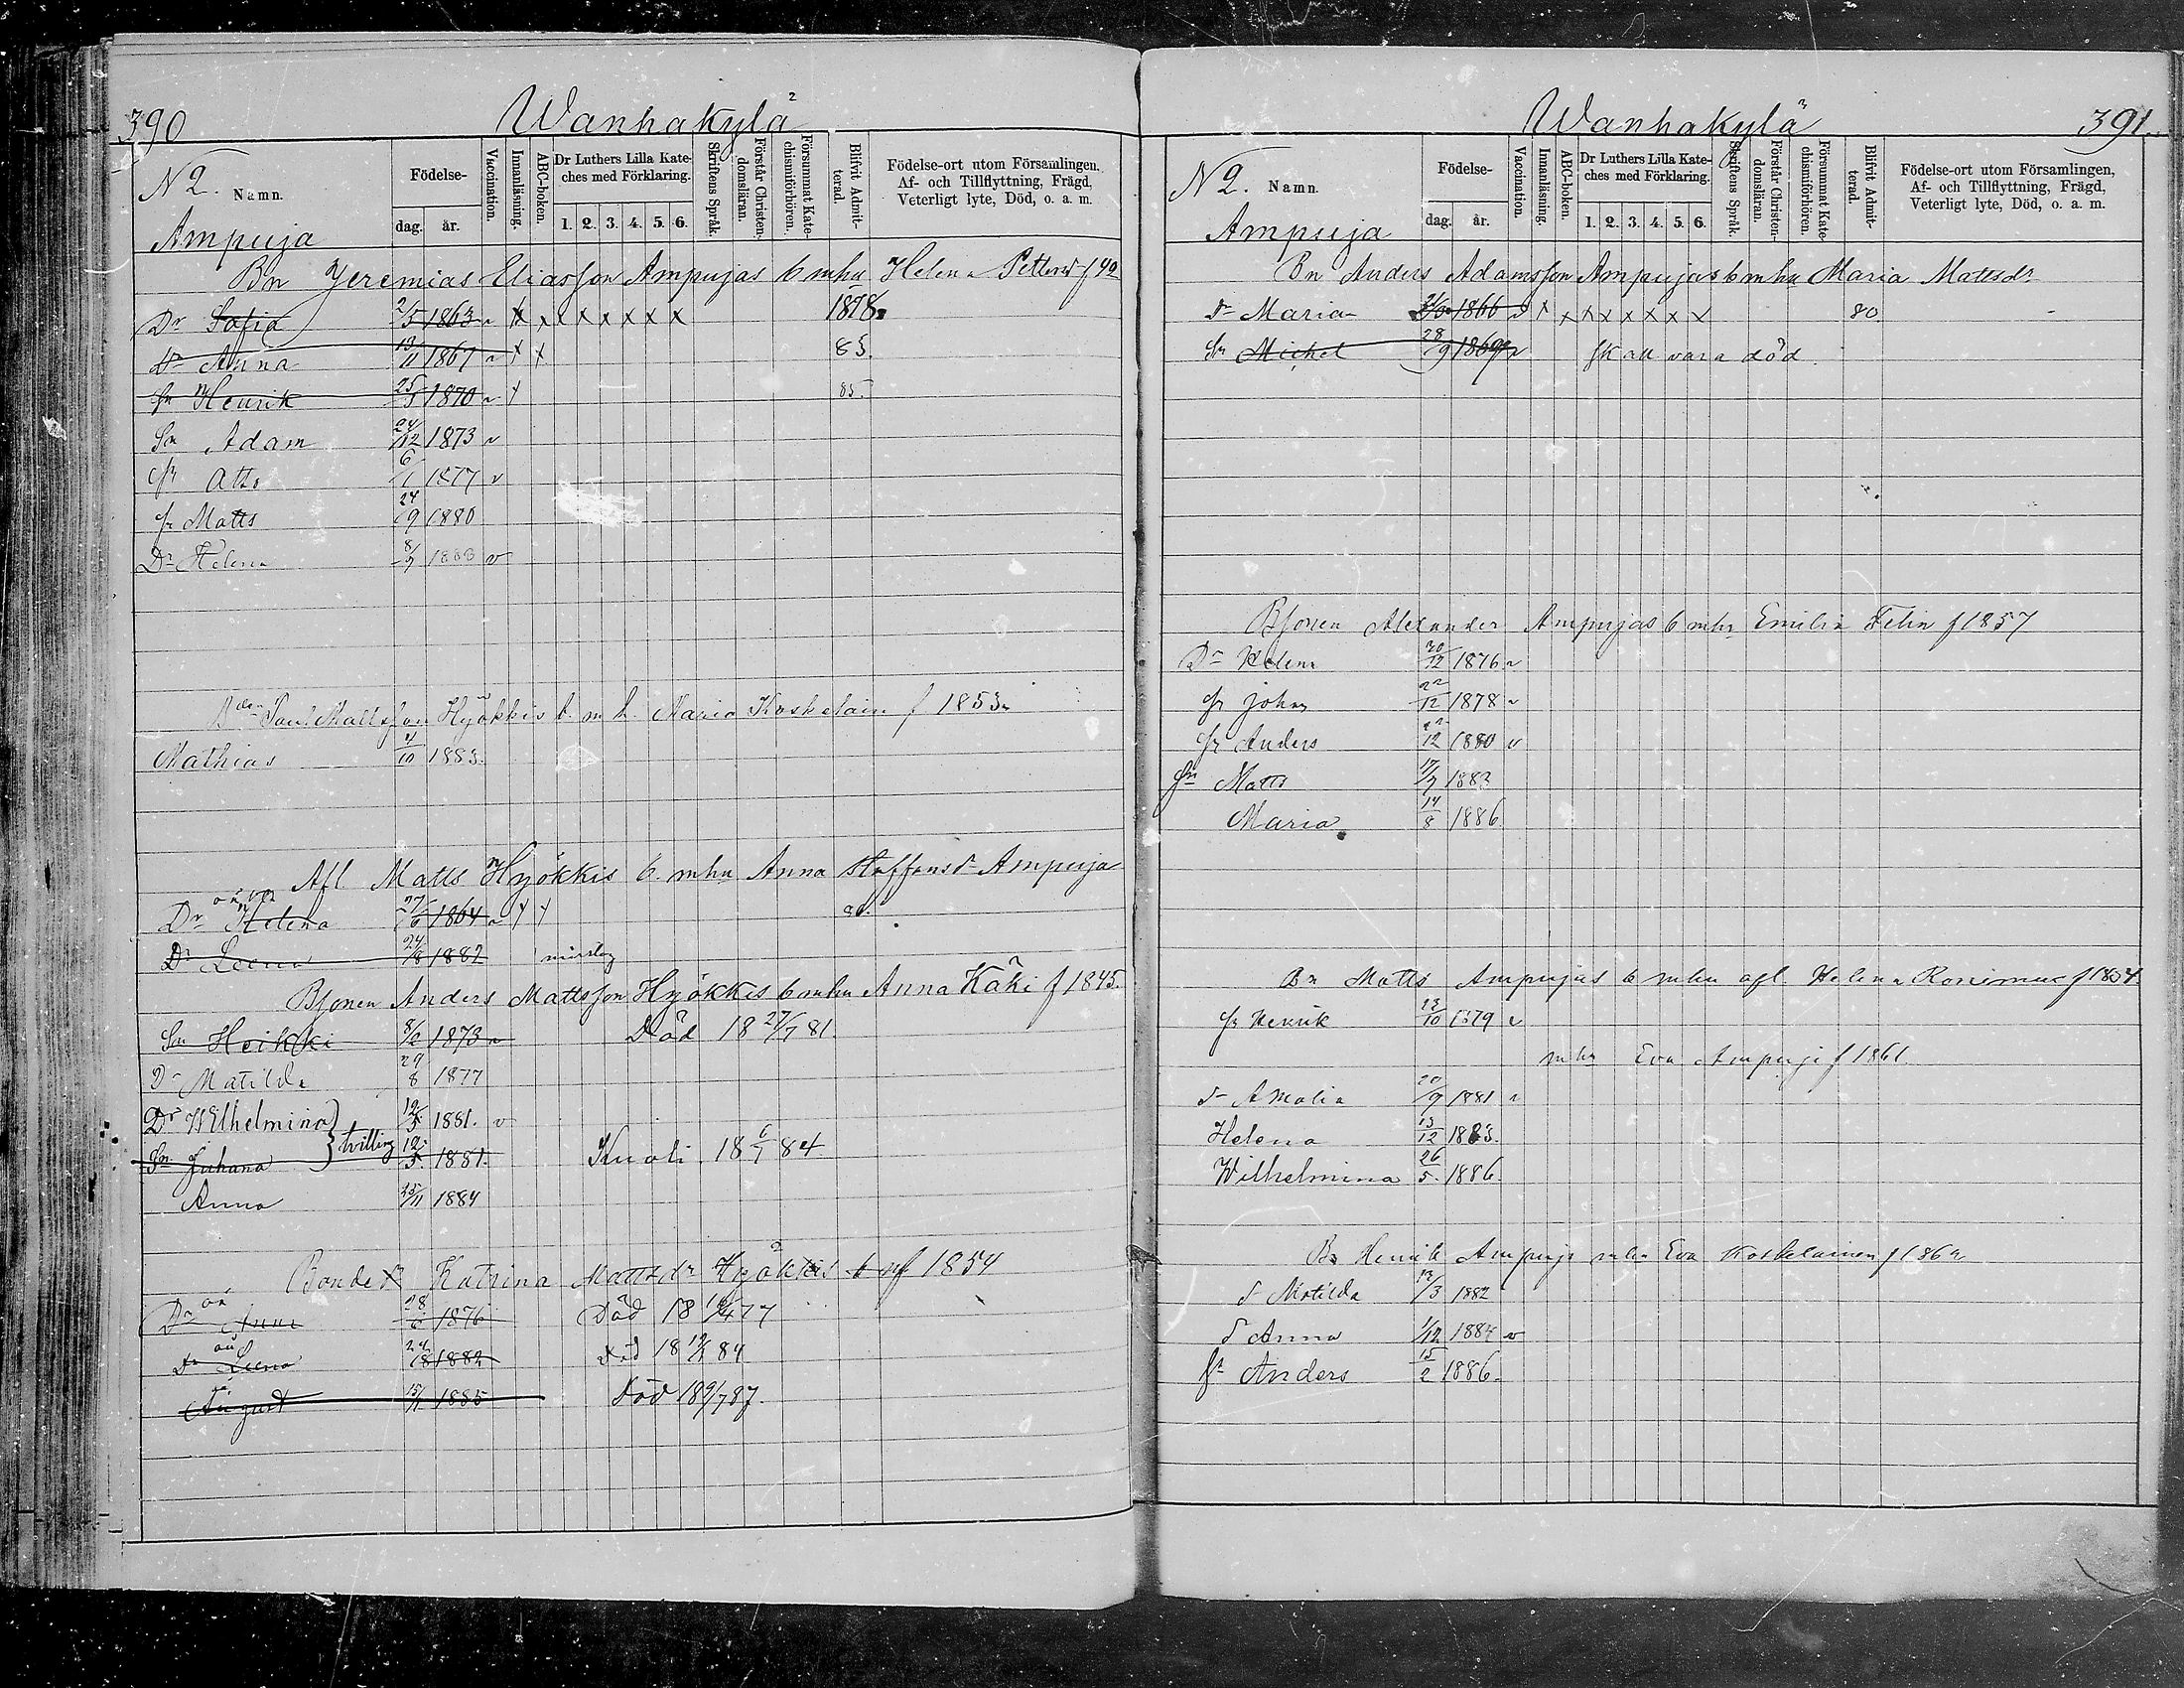 390
Wanhakylä
N 2.
Namn.
Födelse-
dag. år.
Vaccination.
Innanläsning.
ABC-boken.
Dr Luthers Lilla Kate-
ches med Förklaring.
1. 2. 3. 4. 5. 6.
Skriftens Språk.
Förstår Christen-
domsläran.
Försummat Kate-
chismiförhören.
Blifvit Admit-
terad.
Födelse-ort utom Församlingen,
Af- och Tillflyttning, Frägd,
Veterligt lyte, Död, o. a. m.
Ampuja
Bn Jeremias Eliasson Ampujas b mhu Helena Pettersd f 42
Dr Sofia 2/5 1863 v x x x x x x x x 1878
Dr Anna 13/11 1867 v x x 85.
Sn Henrik 25/5 1870 v 85.
Sn Adam 24/12 1873 v
Sn Atto 6/1 1877 v
Sn Matts 24/9 1880
Dr Helena 8/7 1883 v
Bden Paul Mattsson Hyökkis b. m h. Maria Koskelain f 1853
Mathias 4/10 1883.
Afl Matts Hyökkis b. mhu Anna Staffansdr Ampuja
Dr Helena 1864
Dr Leena 24/8 1882
Bsonen Anders Mattsson Hyökkis b mhu Anna Käki f 1845.
Sn Heikki 8/2 1873 v Död 18 27/7 81.
Dr Matilda 29/8 1877
Dr Wilhelmina 12/5 1881. v
tvilling
Sn Juhana 12/5 1881. Kuoli 18 6/7 84
Anna 25/11 1884
Bonde Katrina Mattsdr Hyökkis b f 1854
oä
Dr Anna 28/6 1876 Död 18 77
oä
Dr Leena 24/8 1882 död 18 84
August 15/7 1885 Död 18 9/7 87.
Wanhakylä
391.
N 2.
Namn.
Födelse-
dag. år.
Vaccination.
Innanläsning.
ABC-boken.
Dr Luthers Lilla Kate-
ches med Förklaring.
1. 2. 3. 4. 5. 6.
Skriftens Språk.
Förstår Christen-
domsläran.
Försummat Kate-
chismiförhören.
Blifvit Admit-
terad.
Födelse-ort utom Församlingen,
Af- och Tillflyttning, Frägd,
Veterligt lyte, Död, o. a. m.
Ampuja
Bn Anders Adamsson Ampujas b mhu Maria Mattsdr
dr Maria 1866 v x x x x x x x x 80.
Sn Michel 28/9 1869 v skall vara död.
Bsonen Alexander Ampujas b mhu Emilia Felin f 1857
Dr Helena 20/12 1876 v
Sn Johan 22/12 1878 v
Sn Anders 22/12 1880 v
Sn Matts 17/7 1883
Maria 14/8 1886.
Bn Matts Ampujas b mhu afl. Helena Ronimus f 1854.
Sn Henrik 13/10 1879 v
mhu Eva Ampuja f 1861
dr Amalia 20/9 1881 v
Helena 13/12 1883.
Wilhelmina 26/5. 1886.
Bn Henrik Ampuja mhu Eva Koskelainen f 1862
d Matilda 12/3 1882
d Anna 1/12 1884 v
Sn Anders 15/2 1886.